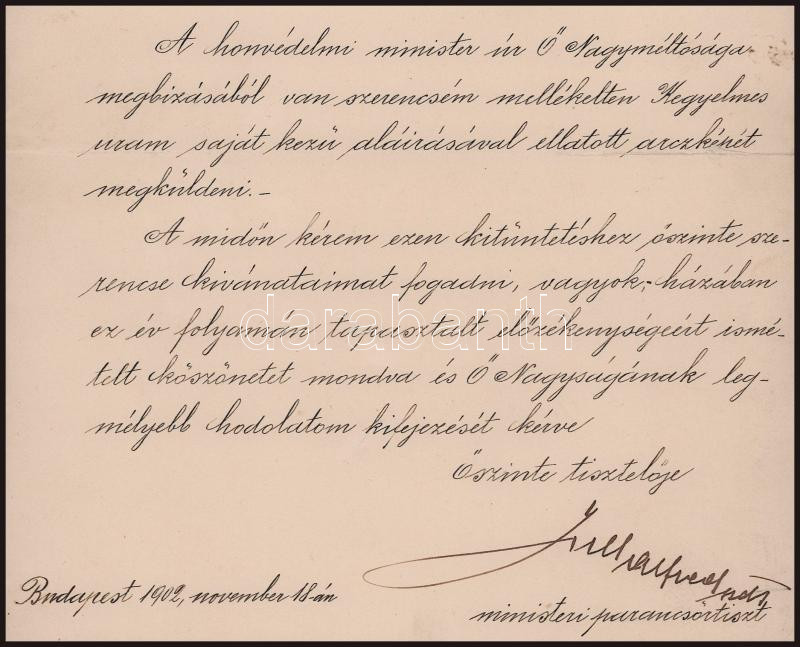 A honvédelmi minister úr Ő Nagyméltósága
megbizásából van szerencsém mellékelten Kegyelmes
uram saját kezü aláirásával ellatott arczképét
megküldeni.–
A midőn kérem ezen kitüntetéshez őszinte sze-
rencse kivánataimat fogadni, vagyok,- házában
ez év folyamán tapasztalt előzékenységeért ismé-
telt köszönetet mondva és Ő Nagyságának leg-
mélyebb hodolatom kifejezését kérve
Őszinte tisztelője
Budapest 1902, november 18-án
ministeri parancsörtiszt
darabanth